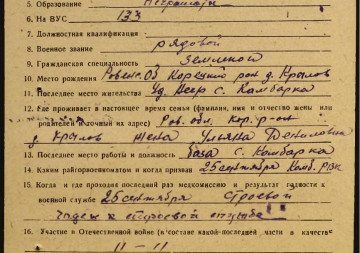 5. Образование
6. На ВУС 133
7. Должностная квалификация
8. Военное звание рядовой
9. Гражданская специальность
10. Место рождения Ровенс. Об Корецкий рай д. Крылов
11. Последнее место жительства Уд. АССР с. Камбарка
12. Где проживает в настоящее время семья (фамилия, имя и отчество жены или
родителей и точный на адрес) Ров. обл. Кор. р-он
д. Крылов жена Ульяна Даниловна
13. Последнее место работы и должность база с. Камбарка
14. Каким райгорвоенкоматом и когда призван 25 сентября Камб. РВК
15. Когда и где проходил последний раз медкомиссию и результат годности к
военной службе 25 сентября Строевой
годен к строевой службе
16. Участие в Отечественной войне (в составе какой последней части и в качестве
— 11 — 11